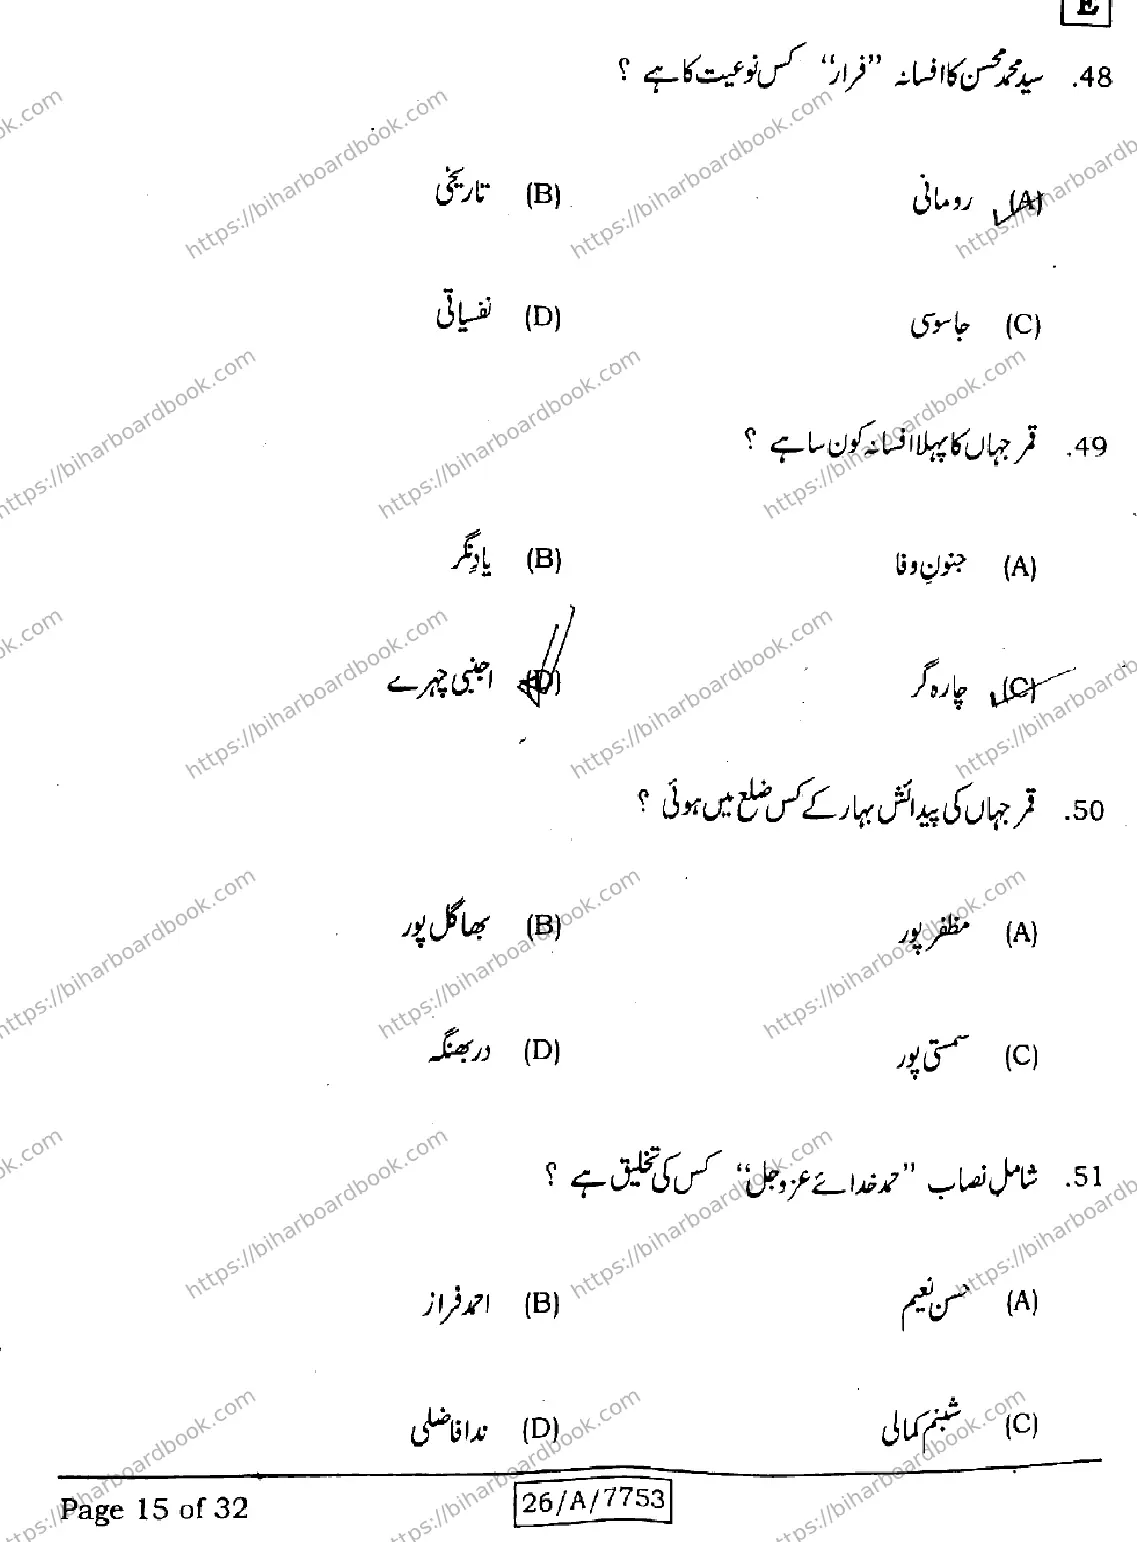 E
48. سید محمد محسن کا افسانہ ”فرار“ کس نوعیت کا ہے ؟
(A) رومانی (B) تاریخی
(C) جاسوسی (D) نفسیاتی
49. قمر جہاں کا پہلا افسانہ کون سا ہے ؟
(A) جنونِ وفا (B) یادِنگر
(C) چارہ گر (D) اجنبی چہرے
50. قمر جہاں کی پیدائش بہار کے کس ضلع میں ہوئی ؟
(A) مظفر پور (B) بھاگل پور
(C) سمستی پور (D) دربھنگہ
51. شامل نصاب ”حمد خدائے عزوجل“ کس کی تخلیق ہے ؟
(A) حسن نعیم (B) احمد فراز
(C) شبنم کمالی (D) ندا فاضلی
Page 15 of 32 26/A/7753
https://biharboardbook.com